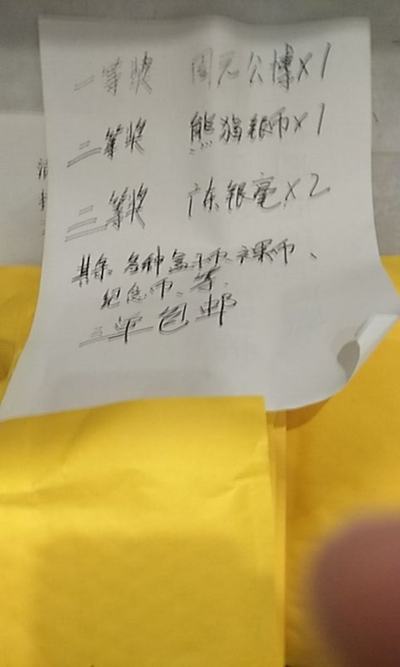 一等奖 開元公博×1
二等奖 熊猫银币×1
三等奖 广东银毫×2
其余 各种盒子币、裸币、
纪念币、等.
三单包邮